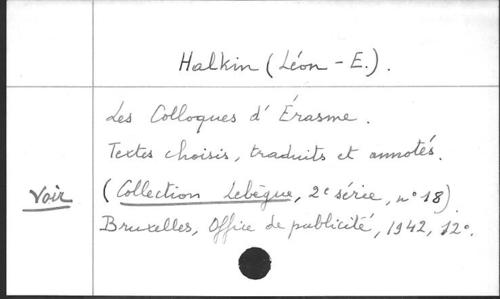 Halkin (Léon - E.).
Les Colloques d'Érasme.
Textes choisis, traduits et annotés.
Voir
(Collection Lebègue, 2e série, n° 18).
Bruxelles, Office de publicité, 1942, 12°.